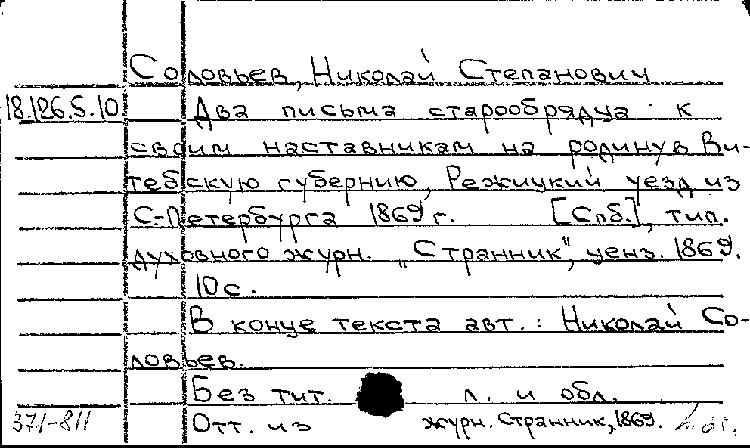 Соловьев, Николай Степанович
18.126.5.10 Два письма старообрядца к
своим наставникам на родину в Ви-
тебскую губернию, Режицкий уезд из
С-Петербурга 1869 г. [Спб.], тип.
духовного журн. „Странник", ценз. 1869.
10 с.
В конце текста авт.: Николай Со-
ловьев.
Без тит. л. и обл.
371-811 Отт. из журн. Странник, 1869.